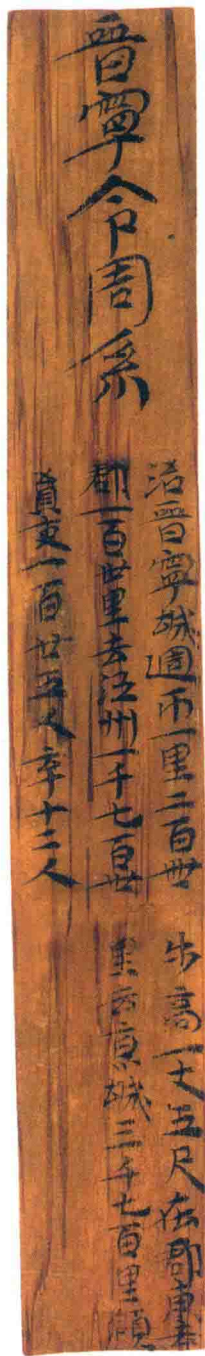 晉寧令周系
治晉寧城週帀一里二百卌步高一丈五尺在郡東去
郡一百卅里去江州一千七百卌里去京城三千七百里領
員吏一百廿五人卒十二人